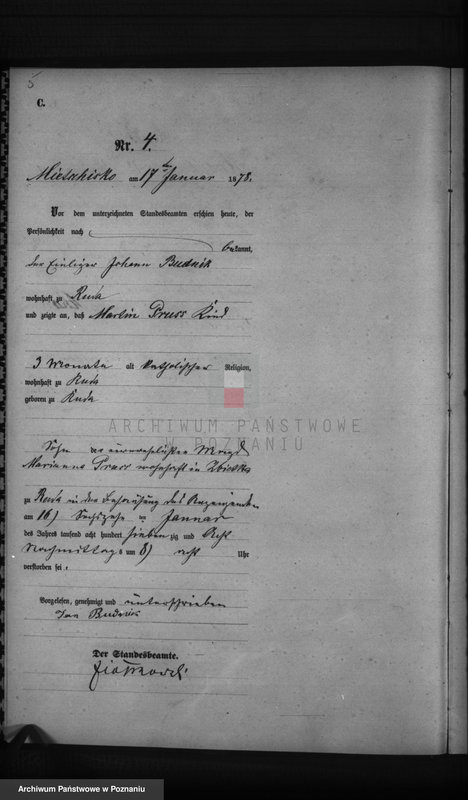 5
C.
Nr. 4.
Mietschisko am 17ten Januar 1878.
Vor dem unterzeichneten Standesbeamten erschien heute, der
Persönlichkeit nach
bekannt,
der Einlieger Johann Budnik
wohnhaft zu Ruda
und zeigte an, daß Martin Pruss Kind
3 Monate alt katholischer Religion,
wohnhaft zu Ruda
geboren zu Ruda
ARCHIWUM PAŃSTWOWE
W POZNANIU
Sohn der unverehelichten Magd
Marianna Pruss wohnhaft in
zu Ruda in der Behausung des Anzeigenden
am 16) Sechszehn ten Januar
des Jahres tausend acht hundert siebenzig und Acht
Nachmittags um 8) acht Uhr
verstorben sei.
Vorgelesen, genehmigt und unterschrieben
Jan Budnik
Der Standesbeamte.
Archiwum Państwowe w Poznaniu